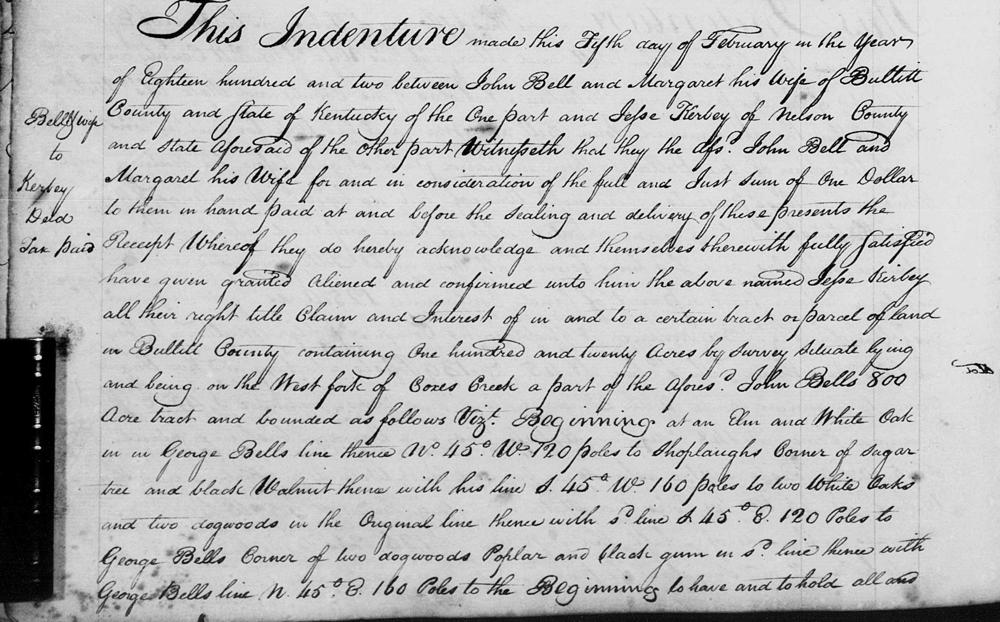 This Indenture made this Fifth day of February in the Year
of Eighteen hundred and two between John Bell and Margaret his Wife of Bullitt
County and State of Kentucky of the One part and Jesse Kerbey of Nelson County
and State Aforesaid of the other part Witnesseth that they the afsd. John Bell and
Margaret his Wife for and in consideration of the full and Just sum of One Dollar
to them in hand paid at and before the Sealing and delivery of these presents the
Receipt Whereof they do hereby acknowledge and themselves therewith fully Satisfied
have given granted Aliened and confirmed unto him the above named Jesse Kirbey
all their right title Claim and Interest of in and to a certain tract or parcel of land
in Bullitt County containing One hundred and twenty Acres by survey Situate lying
and being on the West fork of Coxes Creek a part of the Aforesd. John Bells 800
Acre tract and bounded as follows Vizt. Beginning at an Elm and White Oak
in in George Bells line thence No. 45° W. 120 poles to Shoplaughs Corner of Sugar
tree and black Walnut thence with his line S. 45° W. 160 poles to two White Oaks
and two dogwoods in the Original line thence with sd. line S 45° E. 120 Poles to
George Bells Corner of two dogwoods Poplar and black gum in sd. line thence with
George Bells line N. 45° E. 160 Poles to the Beginning to have and to hold all and
Bell & wife
to
Kerbey
Deed
Tax paid